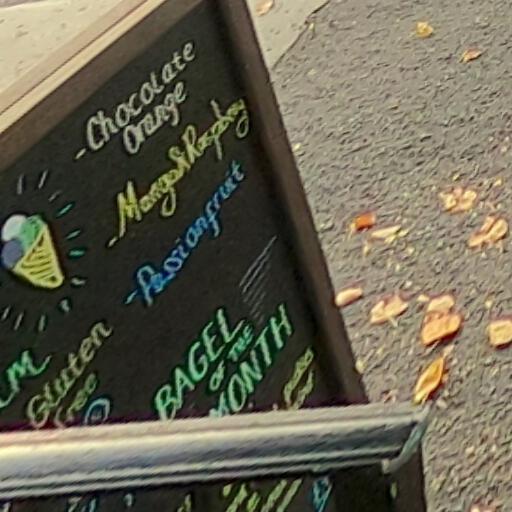 - Chocolate
Orange
- Mango & Raspbry
- Passionfruit
Gluten
free
BAGEL
OF THE
MONTH